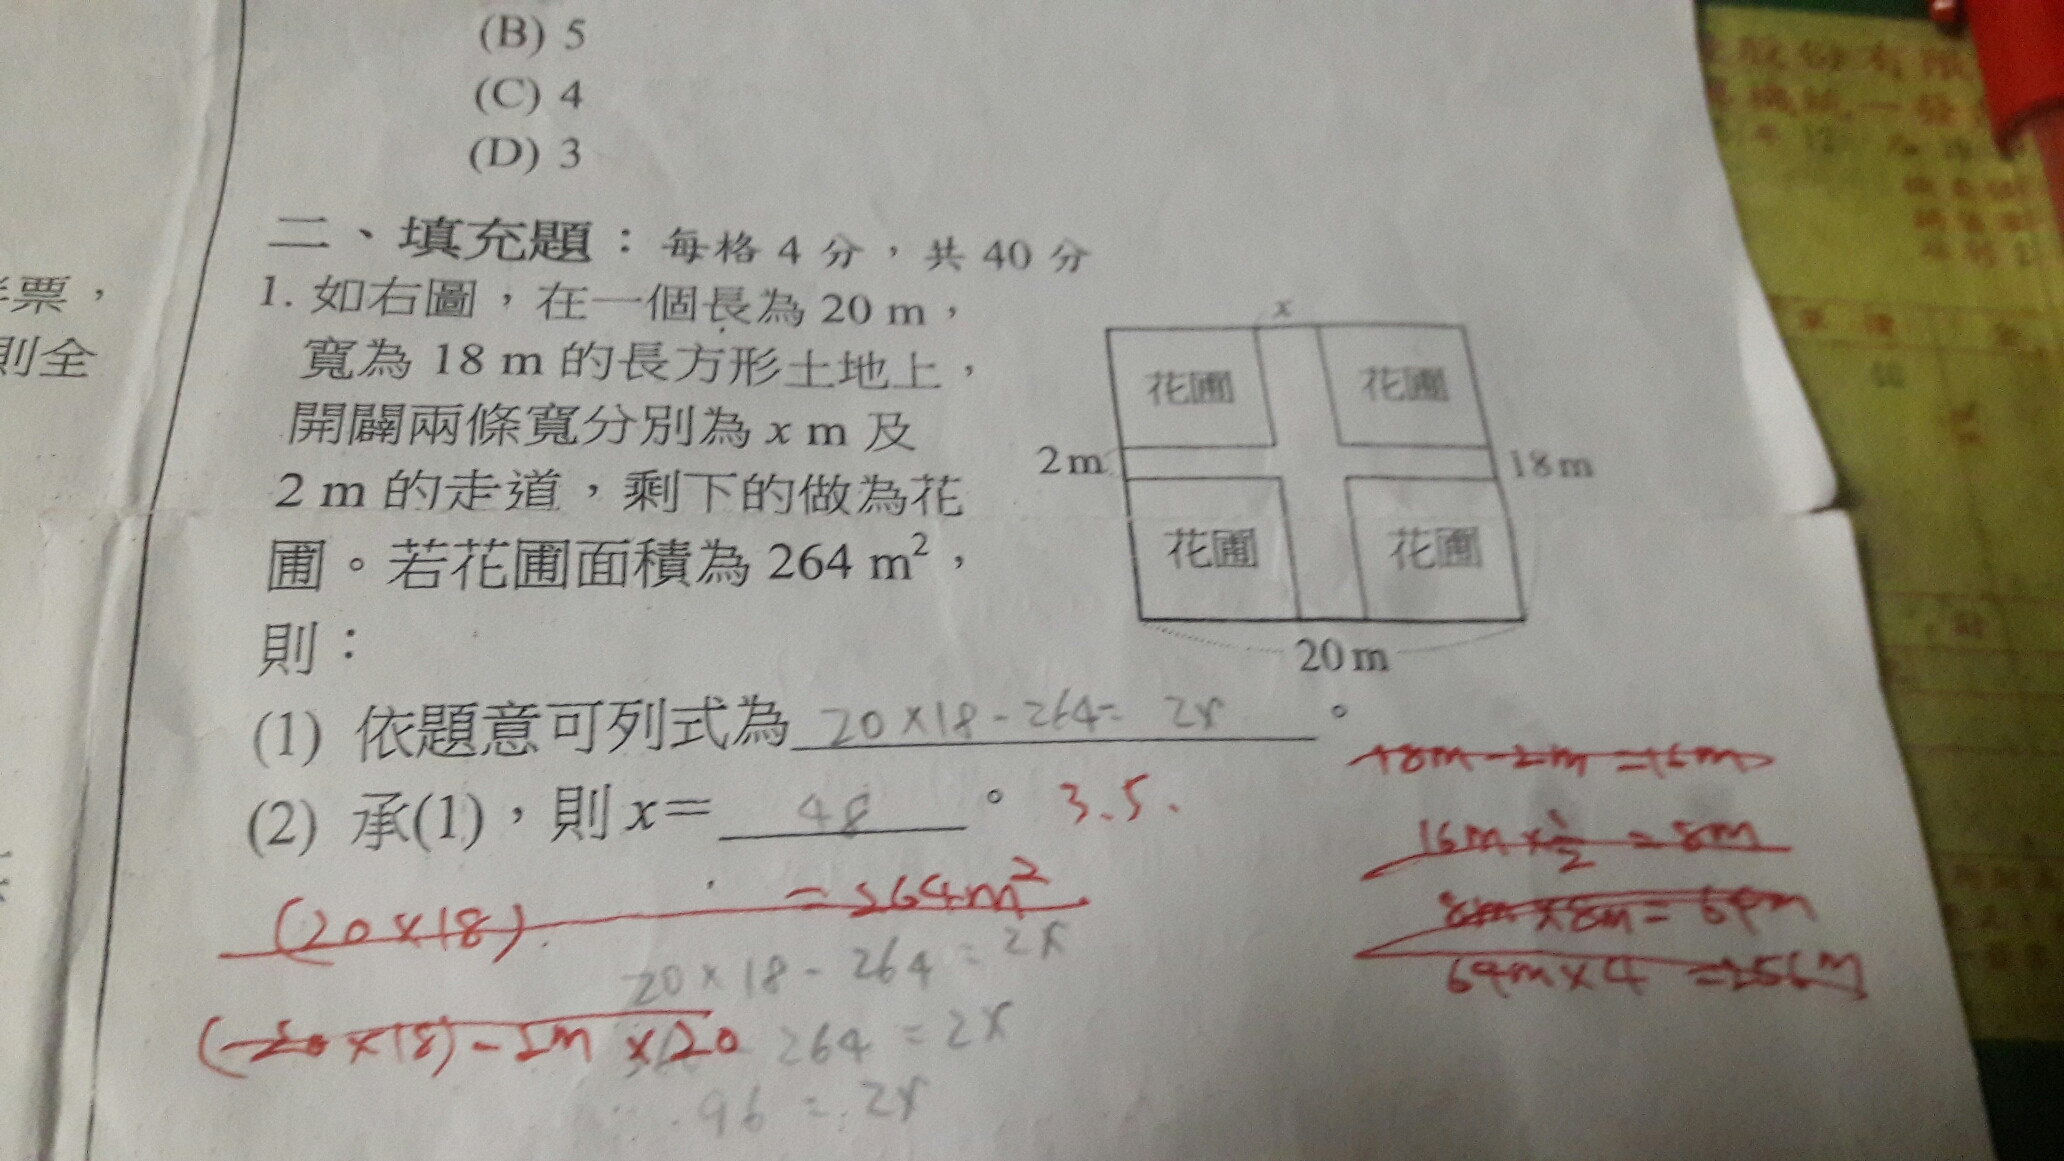 (B) 5
(C) 4
(D) 3
二、填充題：每格 4 分，共 40 分
1. 如右圖，在一個長為 20 m，
寬為 18 m 的長方形土地上，
開闢兩條寬分別為 x m 及
2 m 的走道，剩下的做為花
圃。若花圃面積為 264 m²，
則：
x
花圃 花圃
2 m 18 m
花圃 花圃
20 m
(1) 依題意可列式為 20×18-264= 2x 。
(2) 承(1)，則 x＝ 48 。 3.5.
18m-2m=16m
16m×1/2=8m
8m×8m=64m
64m×4=256m
(20×18) =264m²
20×18-264=2x
(20×18)-2m×20
264=2x
96=2x
票，
則全
股份有限
統一發